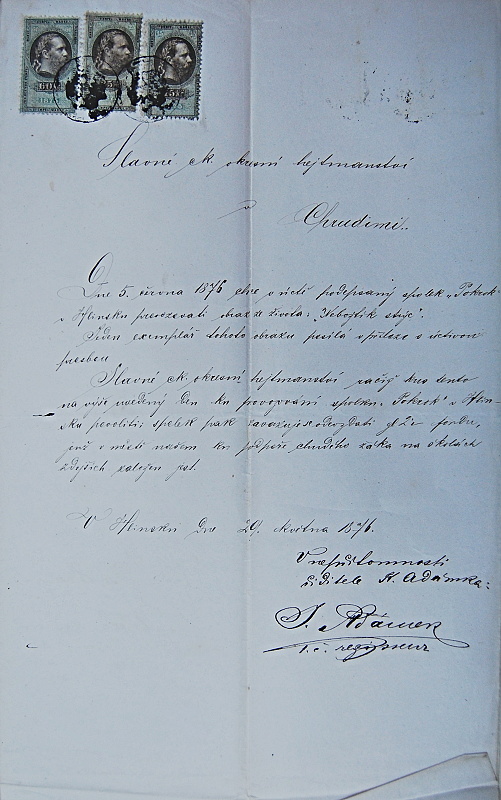 Slavné ck. okresní hejtmanství
v
Chrudimi.
Dne 5. června 1876 chce v úctě podepsaný spolek „Pokrok“
v Hlinsku provozovati obraz ze života: „Nebojtik strýc“.
Jeden exemplář tohoto obrazu posílá v příloze s uctivou
prosbou
Slavné ck. okresní hejtmanství račiž kus tento
na výše uvedený den ku provozování spolku „Pokrok“ v Hlin-
sku povoliti; spolek pak zavazuje se odevzdati 2 zl. fondu,
jenž v městě našem ku podpoře chudého žáka na školách
zdejších založen jest.
V Hlinsku dne 29. května 1876.
V nepřítomnosti
ředitele K. Adámka:
J. Adámek
t. č. regisseur